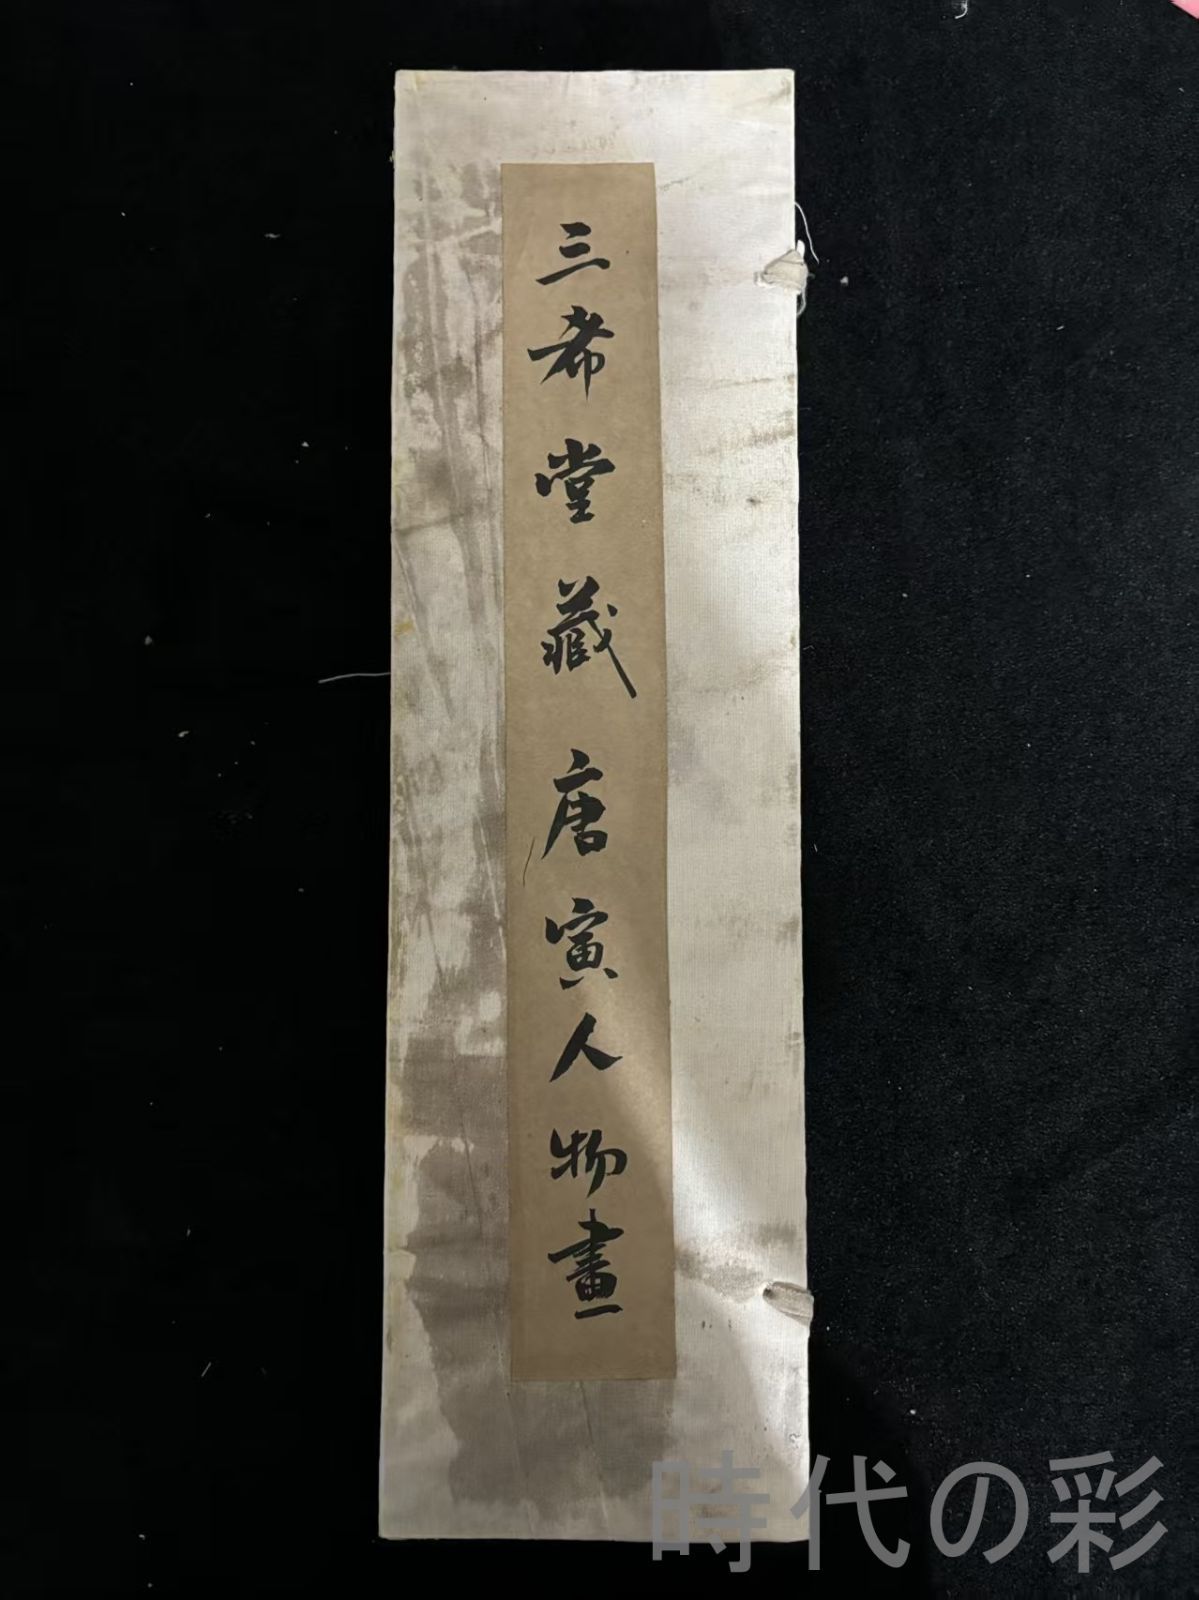 三希堂藏唐寅人物畫
時代の彩